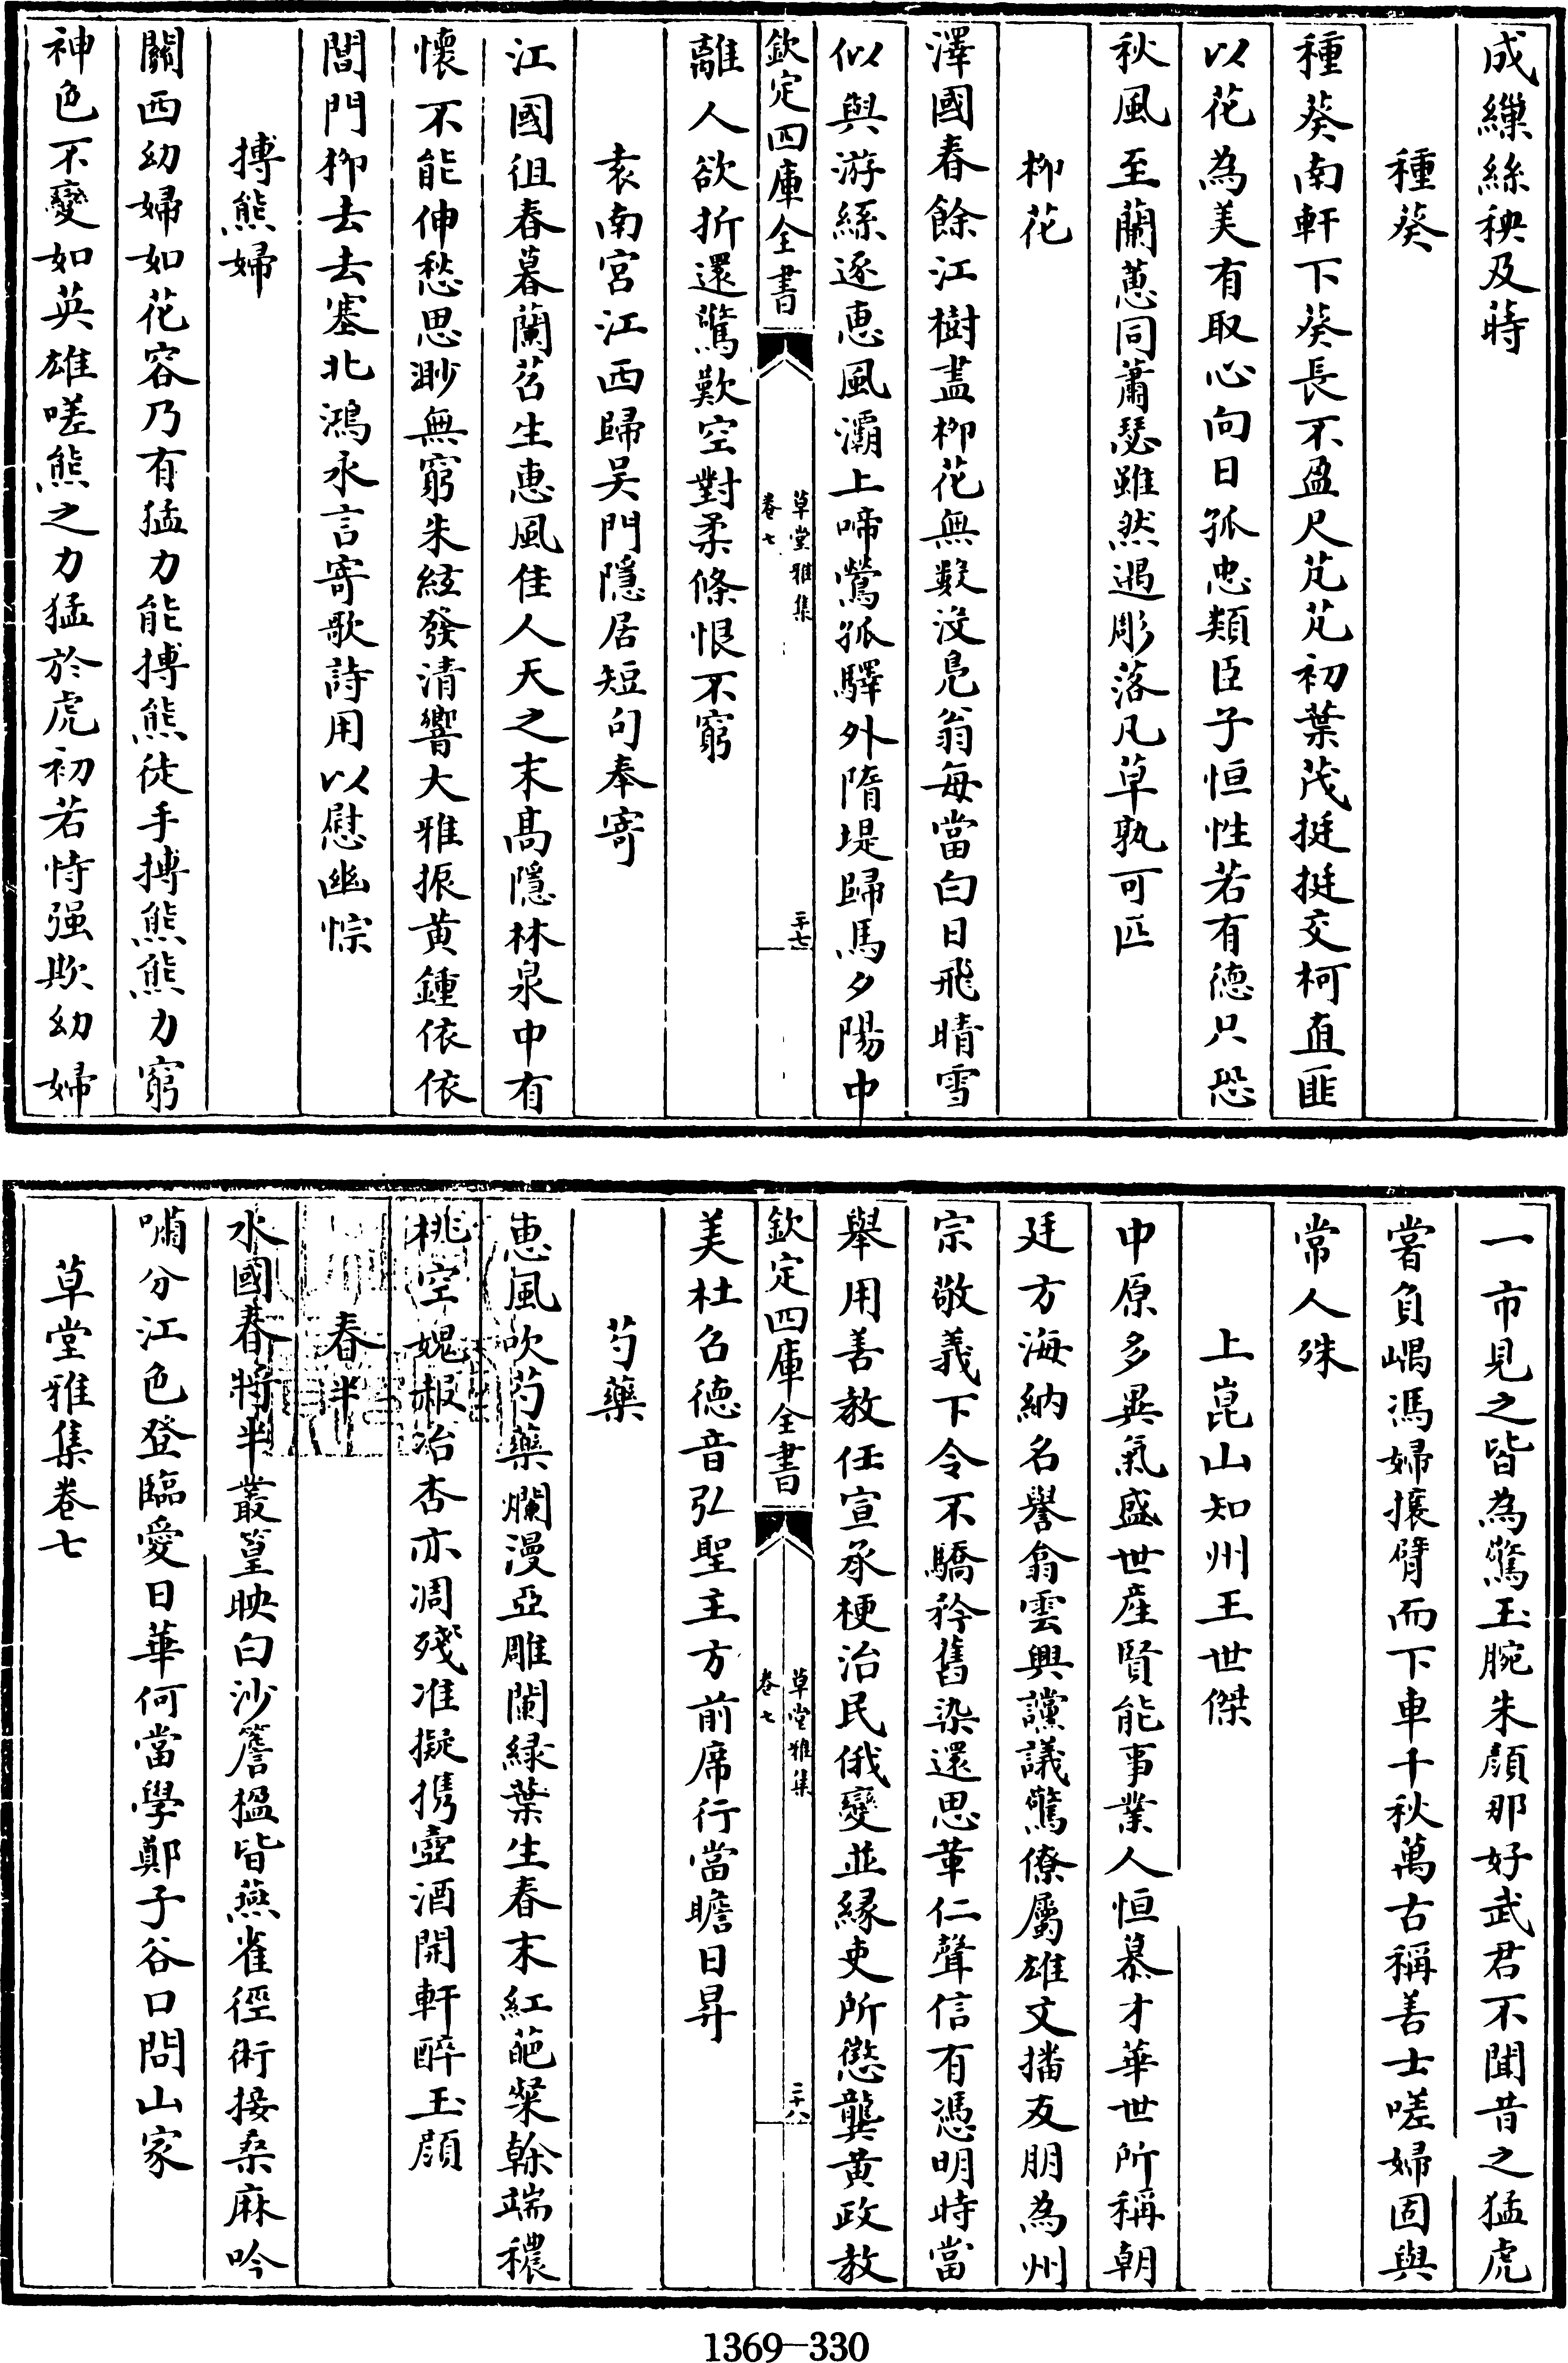 成繅絲秧及時
種葵
種葵南軒下葵長不盈尺芃芃初葉茂挺挺交柯直匪
以花為美有取心向日孤忠類臣子恒性若有德只恐
秋風至蘭蕙同蕭瑟雖然遇彫落凡草孰可匹
柳花
澤國春餘江樹盡柳花無數沒鳧翁每當白日飛晴雪
似與游絲逐惠風灞上啼鶯孤驛外隋堤歸馬夕陽中
欽定四庫全書
草堂雅集
卷七
二十七
離人欲折還驚歎空對柔條恨不窮
袁南宮江西歸吳門隱居短句奉寄
江國徂春暮蘭苕生惠風佳人天之末高隱林泉中有
懷不能伸愁思渺無窮朱絃發清響大雅振黃鍾依依
閶門柳去去塞北鴻永言寄歌詩用以慰幽悰
搏熊婦
關西幼婦如花容乃有猛力能搏熊徒手搏熊熊力窮
神色不變如英雄嗟熊之力猛於虎初若恃强欺幼婦
一市見之皆為驚玉腕朱顔那好武君不聞昔之猛虎
嘗負嵎馮婦攘臂而下車千秋萬古稱善士嗟婦固與
常人殊
上崑山知州王世傑
中原多異氣盛世產賢能事業人恒慕才華世所稱朝
廷方海納名譽翕雲興讜議驚僚屬雄文播友朋為州
宗敬義下令不驕矜舊染還思革仁聲信有憑明時當
舉用善教任宣承梗治民俄變並緣吏所懲龔黃政教
欽定四庫全書
草堂雅集
卷七
二十八
美杜召德音弘聖主方前席行當瞻日昇
芍藥
惠風吹芍藥爛漫亞雕闌緑葉生春末紅葩粲榦端穠
桃空媿赧冶杏亦凋殘准擬携壺酒開軒醉玉顔
春半
水國春將半叢篁映白沙簷楹皆燕雀徑術接桑麻吟
嘯分江色登臨愛日華何當學鄭子谷口問山家
草堂雅集卷七
1369—330